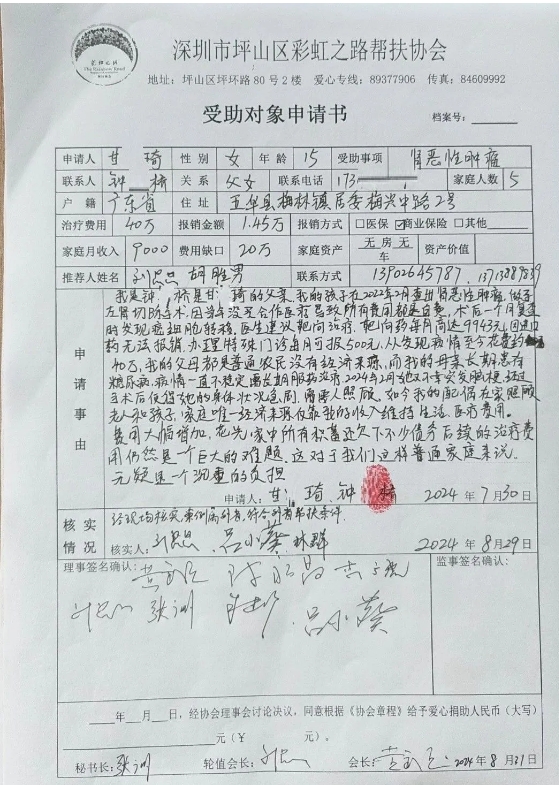 彩虹之路
The Rainbow Road
深圳市坪山区彩虹之路帮扶协会
地址：坪山区坪环路80号2楼 爱心专线：89377906 传真：84609992
受助对象申请书 档案号：
申请人 甘 琦 性别 女 年龄 15 受助事项 肾恶性肿瘤
联系人 钟 桥 关系 父女 联系电话 173 家庭人数 5
户籍 广东省 住址 五华县梅林镇居委梅兴中路2号
治疗费用 40万 报销金额 1.45万 报销方式 □医保 ☑商业保险 □其他
家庭月收入 9000 费用缺口 20万 家庭资产 无房无车 资产价值
推荐人姓名 胡胜男 联系方式 13902645787. 13713889839
申请事由
我是钟 桥是甘 琦的父亲，我的孩子在2022年2月查出肾恶性肿瘤，做了
左肾切除手术，因当年没买合作医疗导致所有费用都是自费，术后一个月复查
的发现癌细胞转移，医生建议靶向治疗，靶向药每月高达9943元，因进口
药无法报销，办理特殊门诊每月可报500元，从发现病情至今花费约
40万，我的父母都是普通农民没有经济来源，而我的母亲长期患有
糖尿病，病情一直不稳定需长期服药治疗，2024年2月他又不幸突发脑梗，经过
手术后使得她的身体状况急剧，需要人照顾，如今我的配偶在家照顾
老人和孩子，家庭唯一经济来源仅靠我的收入维持生活，医疗费用
费用大幅增加，花光家中所有积蓄还欠下不少债务后续的治疗费
用仍然是一个巨大的难题，这对于我们这样普通家庭来说，
无疑是一个沉重的负担
申请人：甘 琦 钟 桥 2024年7月30日
核实情况
经现场核实，符合帮扶条件.
核实人： 吕小葵 林群 2024年8月29日
理事签名确认： 监事签名确认：
张训 吕小葵
年 月 日，经协会理事会讨论决议，同意根据《协会章程》给予爱心捐助人民币（大写）
元（￥ 元）。
秘书长：张训 轮值会长： 会长： 2024年8月31日